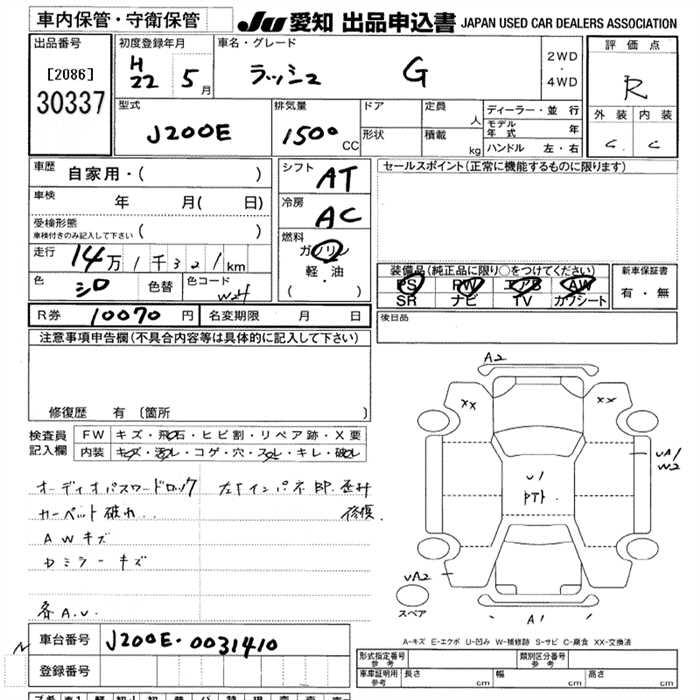 車内保管・守衛保管
JU 愛知 出品申込書 JAPAN USED CAR DEALERS ASSOCIATION
出品番号
[2086]
30337
初度登録年月
H
22 5月
車名・グレード
ラッシュ G
2WD
・
4WD
評価点
R
外装 内装
C C
型式
J200E
排気量
1500 CC
ドア
形状
定員
人
積載
kg
ディーラー・並行
モデル
年式 年
ハンドル 左・右
車歴
自家用・( )
車検 年 月( 日)
受検形態
車検付きのみ記入して下さい ( )
走行 14万1千321km
色 シロ 色替 色コード
W24
シフト AT
冷房 AC
燃料
ガソリン
軽・油
( ・ )
セールスポイント(正常に機能するものに限ります)
装備品(純正品に限り○をつけてください)
PS PW エアB AW
SR ナビ TV カワシート
新車保証書
有・無
R券 10070 円 名変期限 月 日
後日品
注意事項申告欄(不具合内容等は具体的に記入して下さい)
修復歴 有 〔箇所 〕
検査員
記入欄
FW キズ・飛石・ヒビ割・リペア跡・X要
内装 キズ・汚レ・コゲ・穴・スレ・キレ・破レ
オーディオパスワードロック
左Fインパネ部 歪み
修復
カーペット破れ
AWキズ
Dミラーキズ
各A.U.
A2
XX XX
UA1
W2
U1
PTト
UA2
スペア
A1
A-キズ E-エクボ U-凹み W-補修跡 S-サビ C-腐食 XX-交換済
車台番号 J200E-0031410
登録番号
形式指定番号
参考
類別区分番号
参考
車庫証明用
参考
長さ cm 幅 cm 高さ cm